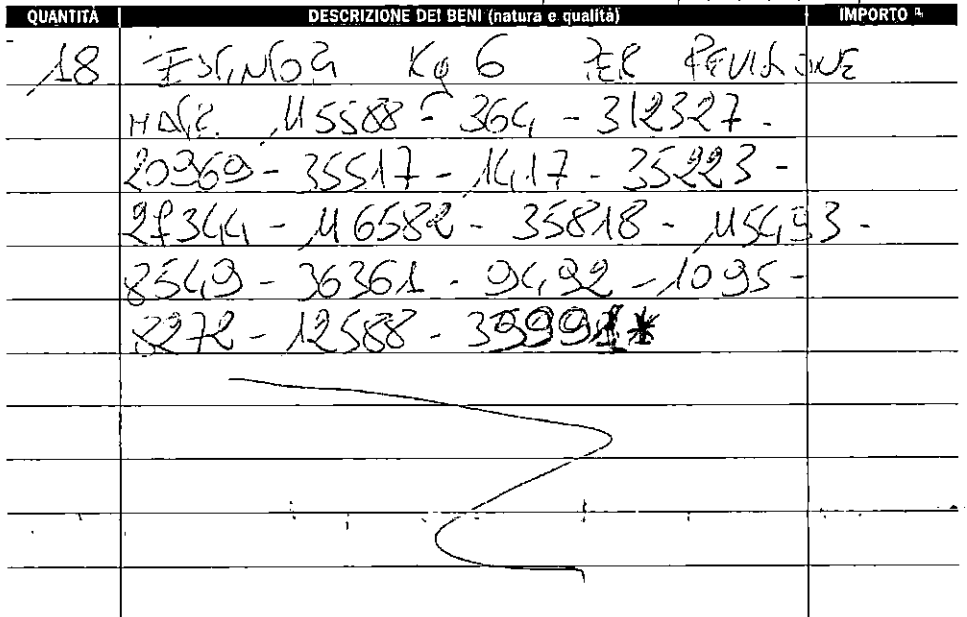 QUANTITÀ DESCRIZIONE DEI BENI (natura e qualità) IMPORTO
18 ESTINTORI KG 6 PER REVISIONE
MATR. 115588 - 364 - 312327 -
20369 - 35517 - 1417 - 35223 -
27344 - 116582 - 35818 - 115493 -
8549 - 36361 - 9492 - 1095 -
8272 - 12588 - 35991*